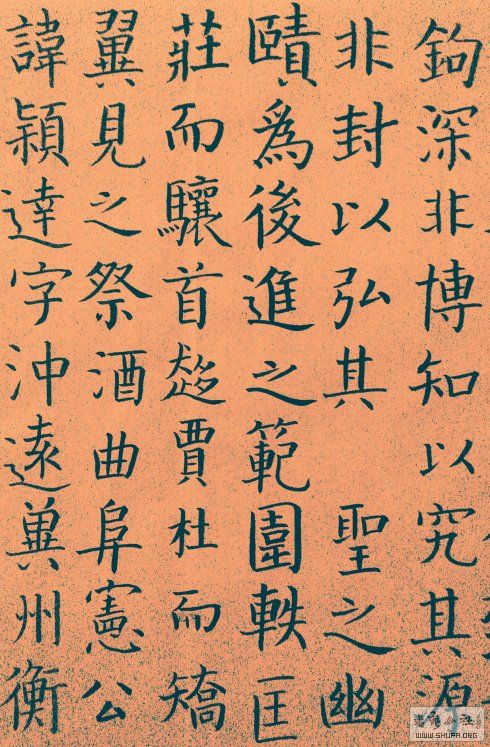 鉤深非博知以究其源
非封以弘其聖之幽
賾爲後進之範圍軼匡
莊而驤首趍賈杜而矯
翼見之祭酒曲阜憲公
諱穎達字沖遠冀州衡
WWW.SHUFA.ORG